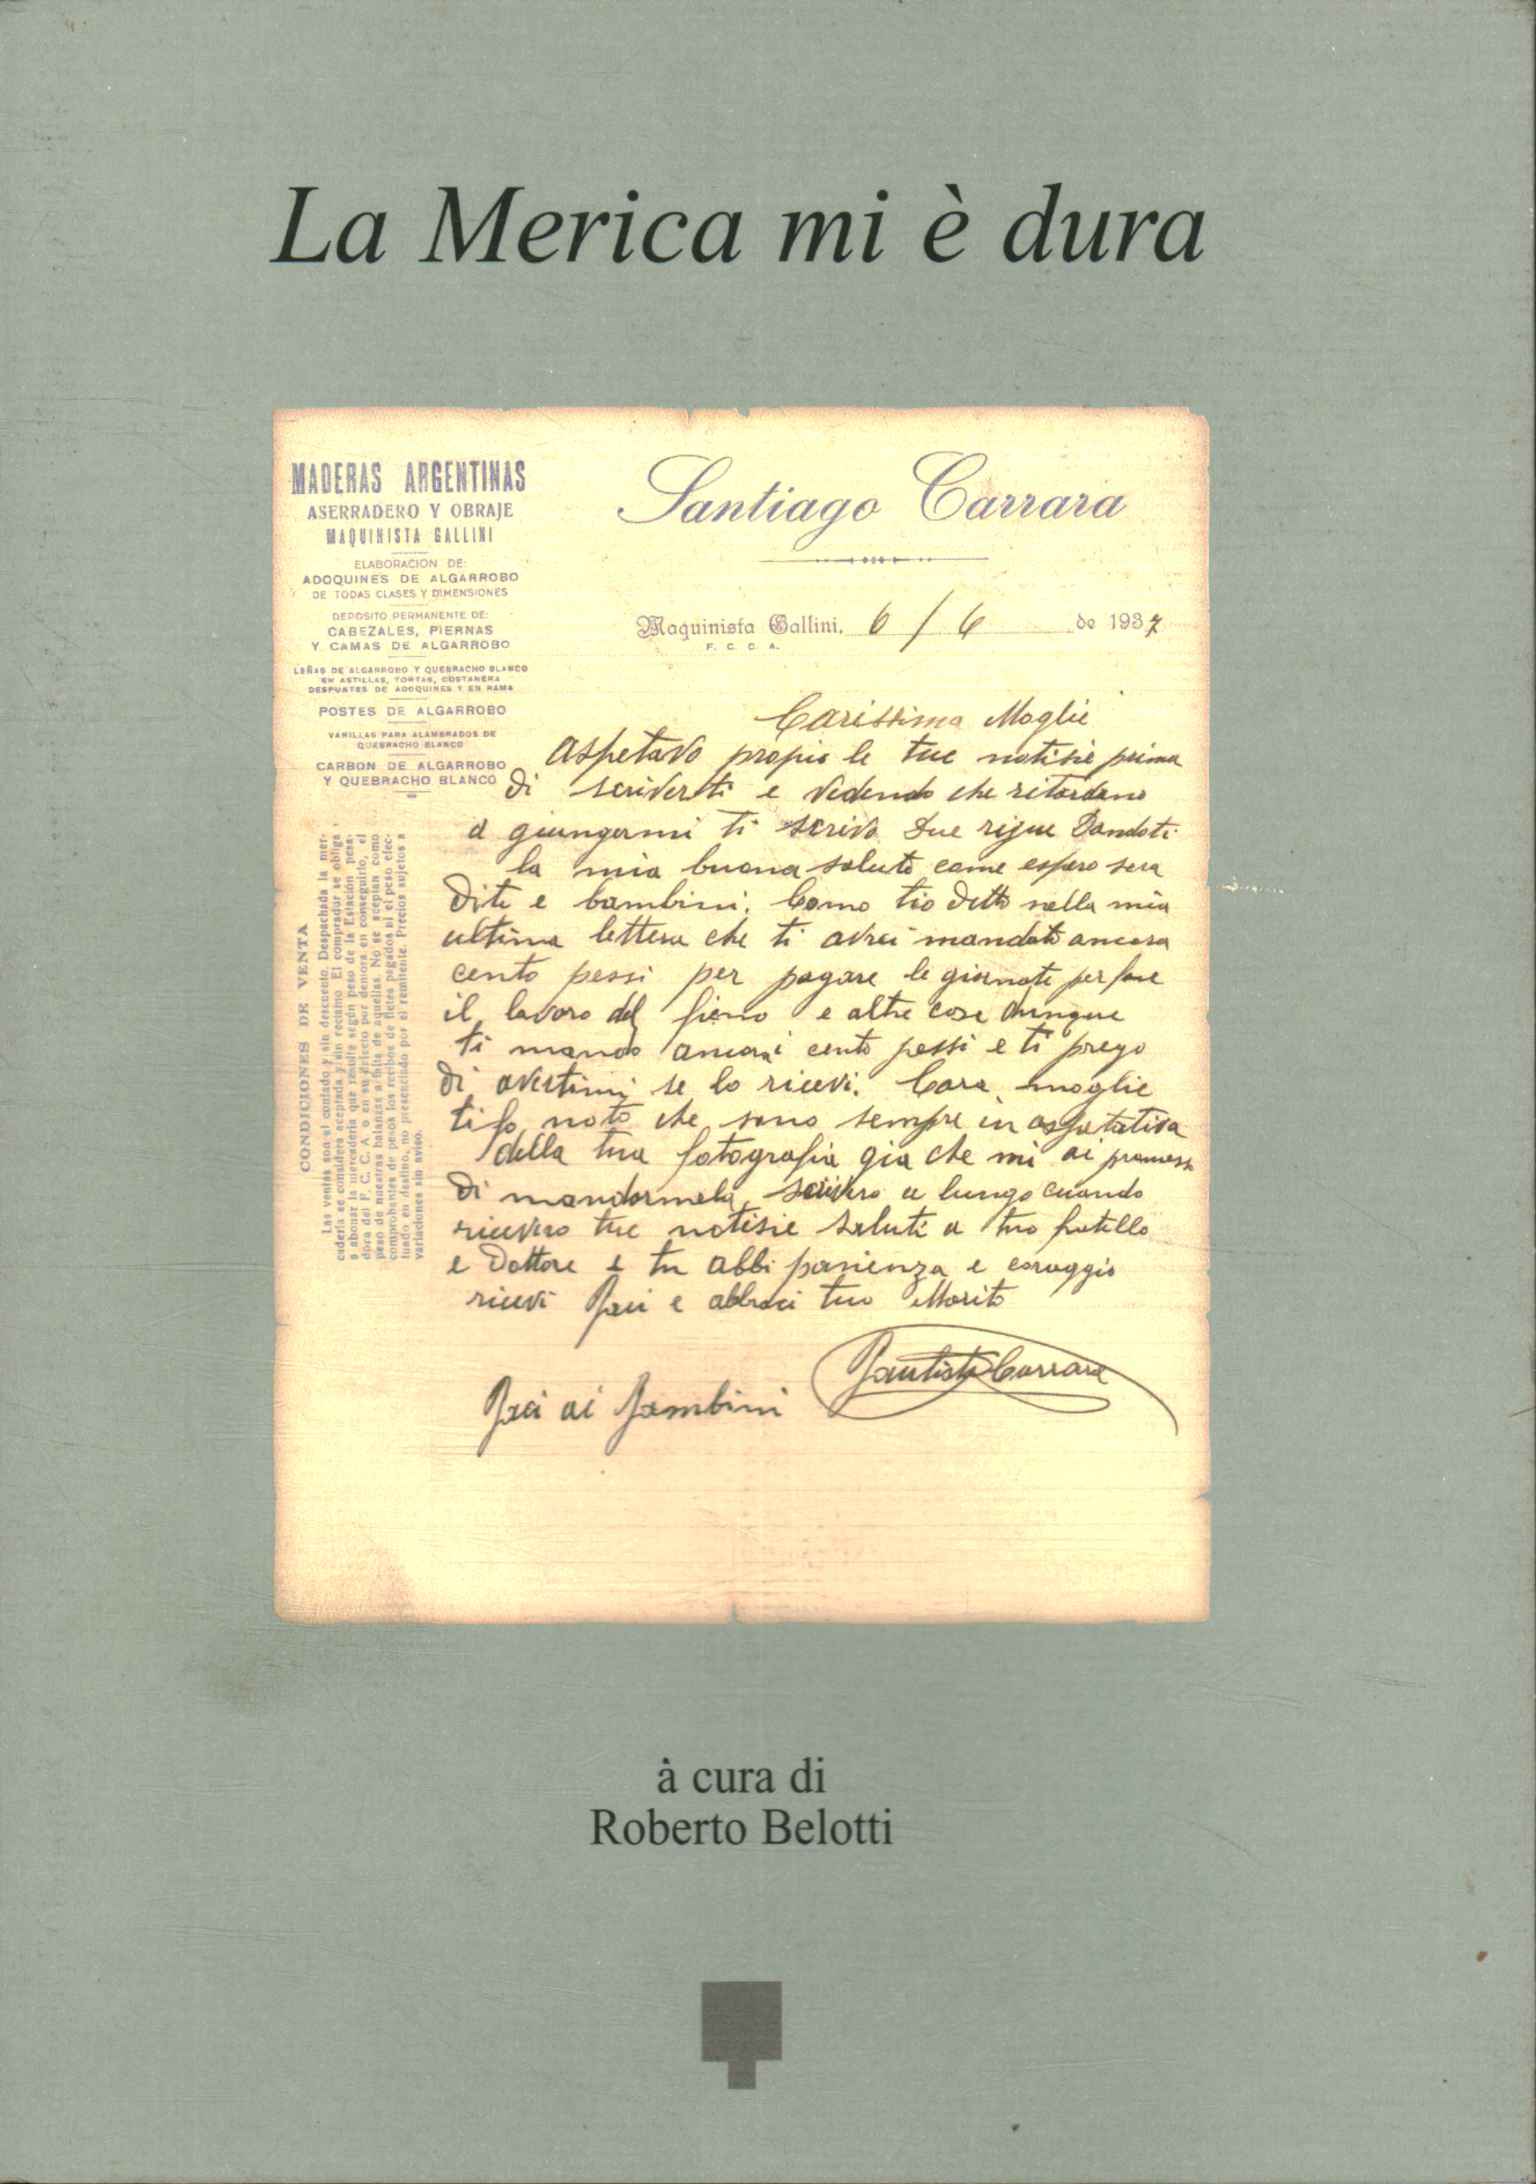 La Merica mi è dura
MADERAS ARGENTINAS
ASERRADERO Y OBRAJE
MAQUINISTA GALLINI
ELABORACION DE:
ADOQUINES DE ALGARROBO
DE TODAS CLASES Y DIMENSIONES
DEPOSITO PERMANENTE DE:
CABEZALES, PIERNAS
Y CAMAS DE ALGARROBO
LEÑAS DE ALGARROBO Y QUEBRACHO BLANCO
EN ASTILLAS, TORTAS, COSTANERA
DESPUNTES DE ADOQUINES Y EN RAMA
POSTES DE ALGARROBO
VARILLAS PARA ALAMBRADOS DE
QUEBRACHO BLANCO
CARBON DE ALGARROBO
Y QUEBRACHO BLANCO
CONDICIONES DE VENTA
Las ventas son al contado y sin descuento. Despachada la mer-
cadería se considera aceptada y sin reclamo. El comprador se obliga
a abonar la mercadería que resulte según peso de la Estación pesa-
dora del F. C. C. A. o en su defecto por demora en conseguirlo, el
peso de nuestras balanzas a falta de aquellas. No se aceptan como
comprobantes de pesos los recibos de fletes pagados ni el peso efec-
tuado en destino, no presenciado por el remitente. Precios sujetos a
variaciones sin aviso.
Santiago Carrara
Maquinista Gallini, 6 / 6 de 1937
F. C. C. A.
Carissima Moglie
Aspetavo propio le tue notisie prima
di scriverti e vedendo che ritardano
a giungermi ti scrivo due rigue Dandoti
la mia buona salute come espero sera
Dite e bambini. Como tio detto nella mia
ultima lettera che ti avrei mandato ancora
cento pessi per pagare le giornate per fare
il lavoro del fieno e altre cose dunque
ti mando ancora cento pessi e ti prego
di avertimi se lo ricevi. Cara moglie
ti fo noto che sono sempre in aspetativa
della tua fotografia gia che mi ai promesso
di mandarmela, scrivero a lungo cuando
ricevero tue notisie saluti a tuo fratello
e Dottore e tu abbi pasienza e coraggio
ricevi Baci e abbraci tuo Marito
Bautista Carrara
Baci ai Bambini
à cura di
Roberto Belotti